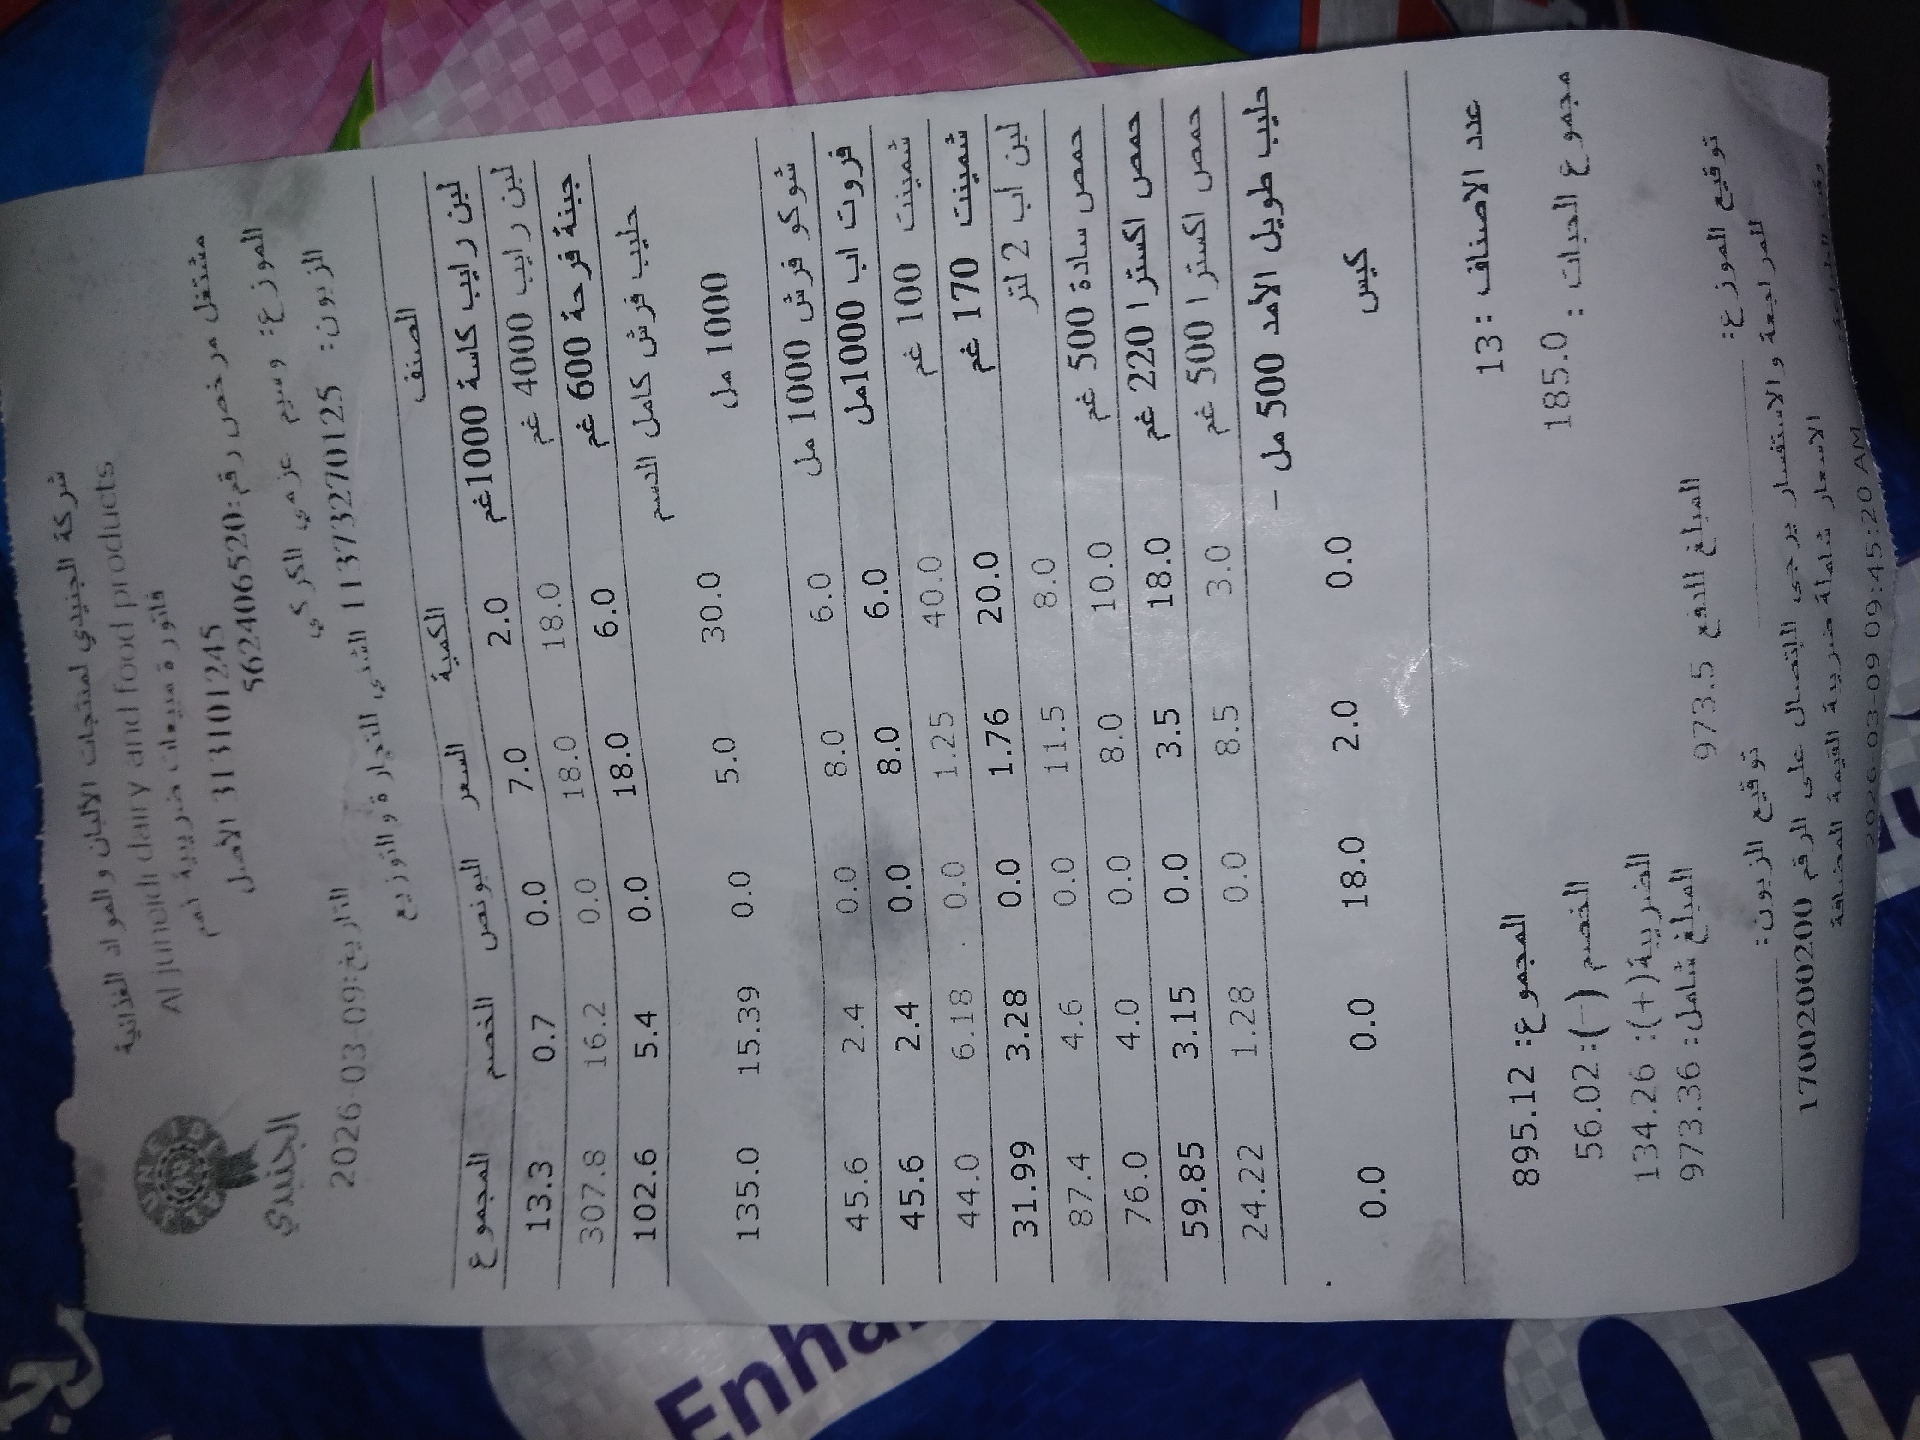 شركة الجنيدي لمنتجات الالبان والمواد الغذائية
Al juneidi dairy and food products
فاتورة مبيعات ضريبية رقم
مشتغل مرخص رقم:562406520
313101245 الأصل
الجنيدي
الموزع: وسيم عزمي الكركي
التاريخ:2026-03-09
الزبون: 11373270125 الشني للتجارة والتوزيع
الصنف الكمية السعر البونص الخصم المجموع
لبن رايب كاسة 1000غم 2.0 7.0 0.0 0.7 13.3
لبن رايب 4000 غم 18.0 18.0 0.0 16.2 307.8
جبنة فرحة 600 غم 6.0 18.0 0.0 5.4 102.6
حليب فرش كامل الدسم
1000 مل 30.0 5.0 0.0 15.39 135.0
شوكو فرش 1000 مل 6.0 8.0 0.0 2.4 45.6
فروت اب 1000مل 6.0 8.0 0.0 2.4 45.6
شمينت 100 غم 40.0 1.25 0.0 6.18 44.0
شمينت 170 غم 20.0 1.76 0.0 3.28 31.99
لبن اب 2 لتر 8.0 11.5 0.0 4.6 87.4
حمص سادة 500 غم 10.0 8.0 0.0 4.0 76.0
حمص اكسترا 220 غم 18.0 3.5 0.0 3.15 59.85
حمص اكسترا 500 غم 3.0 8.5 0.0 1.28 24.22
حليب طويل الأمد 500 مل –
كيس 0.0 2.0 18.0 0.0 0.0
عدد الاصناف :13 المجموع: 895.12
مجموع الحبات : 185.0 الخصم (-): 56.02
الضريبة(+): 134.26
المبلغ للدفع 973.5 المبلغ شامل: 973.36
توقيع الموزع: توقيع الزبون:
للمراجعة والاستفسار يرجى الاتصال على الرقم 1700200200
الاسعار شاملة ضريبة القيمة المضافة
2026-03-09 09:45:20 AM
Enha